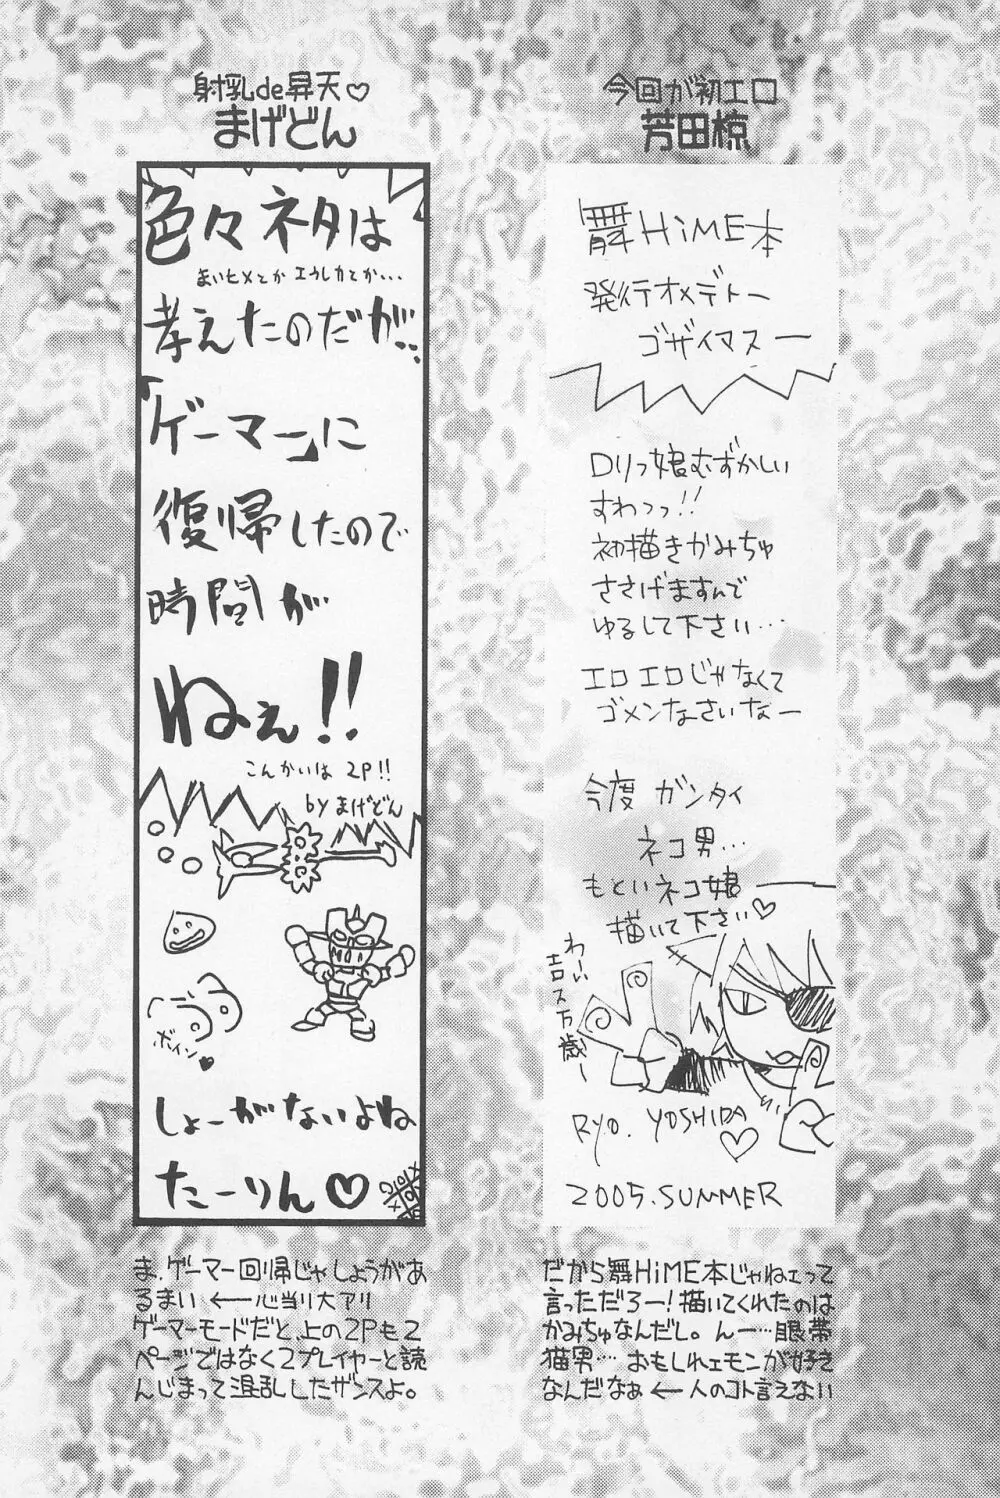 今回が初エロ
芳田椋
舞HiME本
発行オメデトー
ゴザイマスー
ロリっ娘むずかしい
すわっっ!!
初描きかみちゅ
ささげますんで
ゆるして下さい…
エロエロじゃなくて
ゴメンなさいなー
今度 ガンタイ
ネコ男…
もといネコ娘
描いて下さい♡
わーい
吉ス万歳ー
RYO. YOSHIDA
♡
2005.SUMMER
だから舞HiME本じゃねェって
言っただろー!描いてくれたのは
かみちゅなんだし。んー…眼帯
猫男… おもしれェモンが好き
なんだなぁ ← 人のコト言えない
射乳de昇天♡
まげどん
色々ネタは
まいヒメとか エウレカとか...
考えたのだが…
「ゲーマー」に
復帰したので
時間が
ねぇ!!
こんかいは 2P!!
by まげどん
ボイン♥
しょーがないよね
たーりん♡
ま、ゲーマー回帰じゃしょうがあ
るまい ←―心当り大アリ
ゲーマーモードだと、上の2Pも2
ページではなく2プレイヤーと読
んじまって混乱したザンスよ。